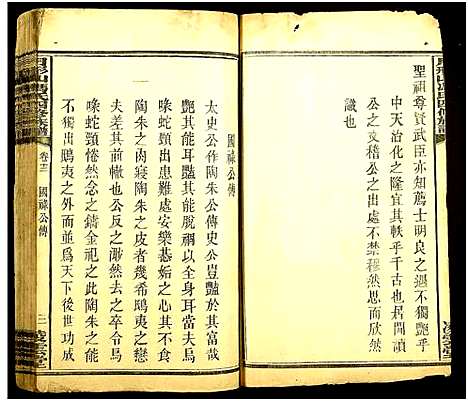 聖祖尊賢武臣亦知薦士明良之遇不獨艷乎
中天治化之隆宜其軼乎千古也居閒讀
公之文稽公之出處不禁穆然思穆然興敬
識也
凌雲堂
國祿公傳
太史公作陶朱公傳史公豈豔於其富哉
豔其能耳豔其能脫禍以全身耳當夫烏
喙蛇頸出患難處安樂惎妬之心其不肉
陶朱之肉寢陶朱之皮者幾希鴟夷之戀
去差其前轍也公反之尠然去之卒令烏
喙蛇頸惓然念之鑄金祀之此陶朱之能
不獨出鴟夷之外而並為天下後世功成
卷十二
國祿公傳
三
凌雲堂